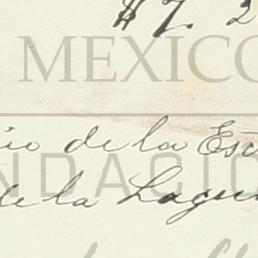 #7. 2
MEXICO
io de la Esc
FUNDACIÓN
de la Lagun